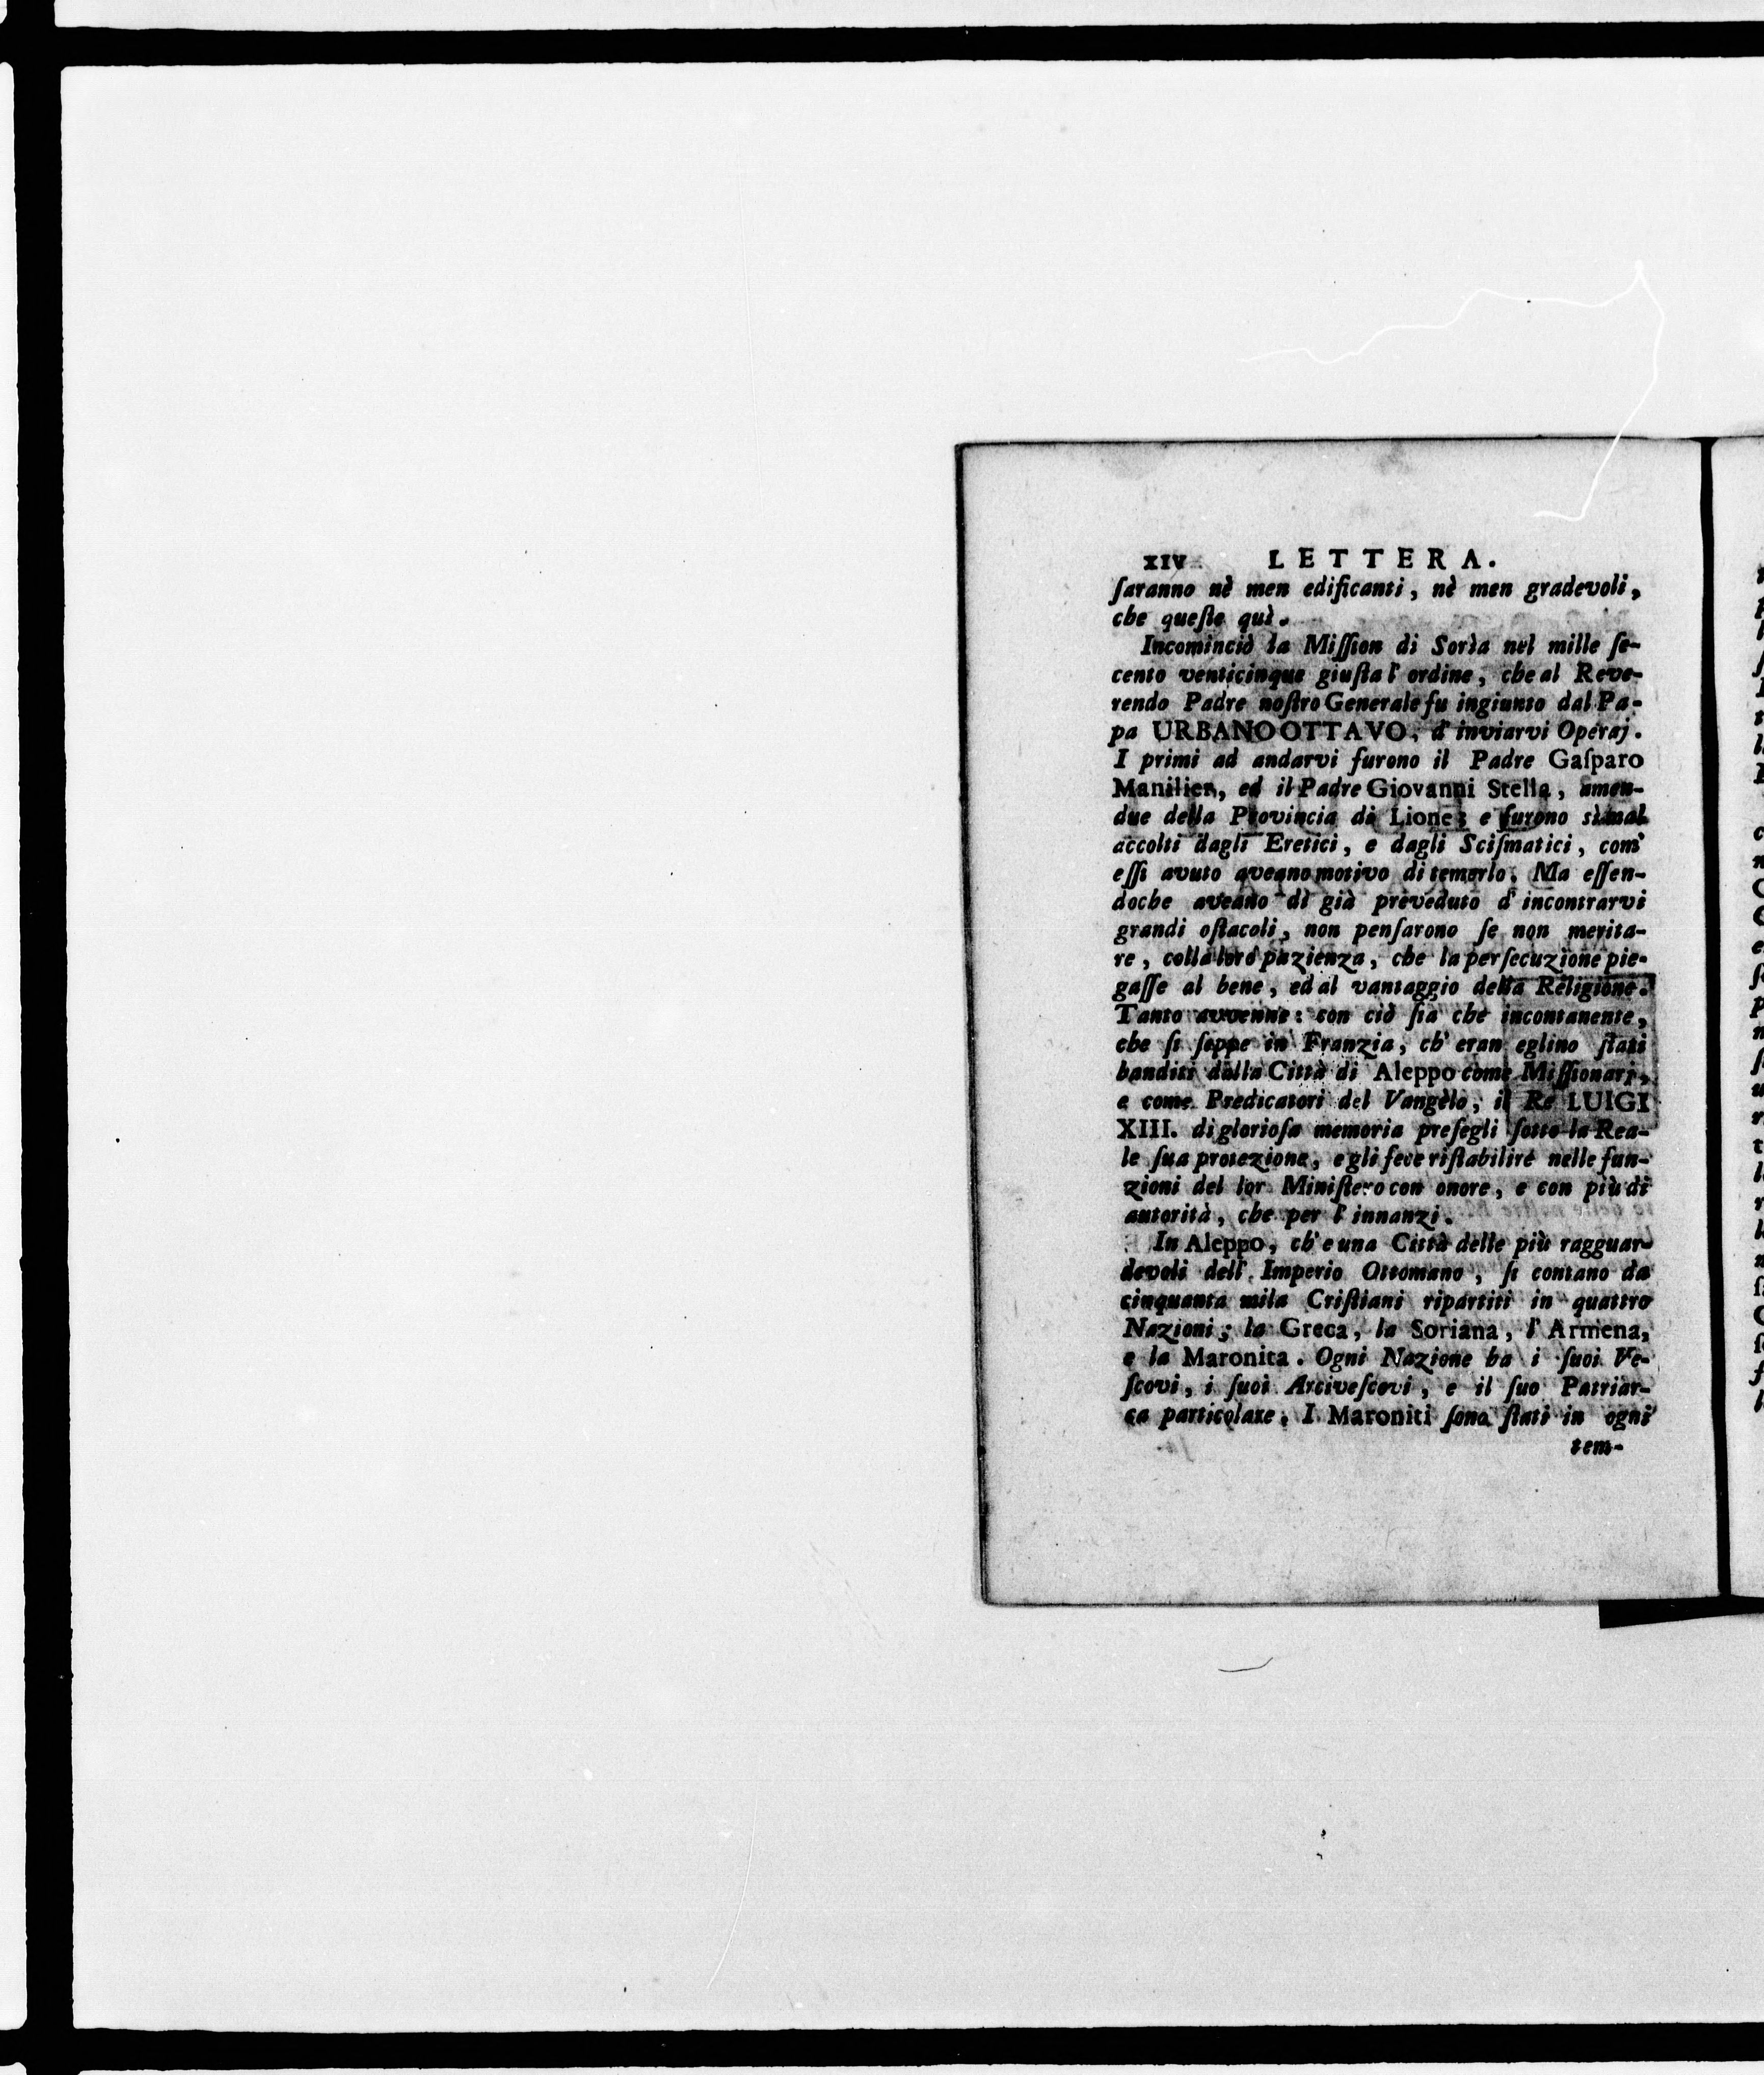 XIV LETTERA.
ſaranno nè men edificanti, nè men gradevoli,
che queſte quì.
Incominciò la Miſſion di Sorìa nel mille ſe-
cento venticinque giuſta l' ordine, che al Reve-
rendo Padre noſtro Generale fu ingiunto dal Pa-
pa URBANO OTTAVO, d' inviarvi Operaj.
I primi ad andarvi furono il Padre Gaſparo
Manilier, ed il Padre Giovanni Stella, amen-
due della Provincia di Lione; e furono sì mal
accolti dagli Eretici, e dagli Sciſmatici, com'
eſſi avuto aveano motivo di temerlo. Ma eſſen-
doche aveano dì già preveduto d' incontrarvi
grandi oſtacoli, non penſarono ſe non merita-
re, colla loro pazienza, che la perſecuzione pie-
gaſſe al bene, ed al vantaggio della Religione.
Tanto avvenne: con ciò ſia che incontanente,
che ſi ſeppe in Franzia, ch' eran eglino ſtati
banditi dalla Città di Aleppo come Miſſionarj,
e come Predicatori del Vangèlo, il Re LUIGI
XIII. di glorioſa memoria preſegli ſotto la Rea-
le ſua protezione, e gli fece riſtabilire nelle fun-
zioni del lor Miniſtero con onore, e con più di
autorità, che per l' innanzi.
In Aleppo, ch' e una Città delle più ragguar-
devoli dell' Imperio Ottomano, ſi contano da
cinquanta mila Criſtiani ripartiti in quattro
Nazioni; la Greca, la Soriana, l' Armena,
e la Maronita. Ogni Nazione ha i ſuoi Ve-
ſcovi, i ſuoi Arciveſcovi, e il ſuo Patriar-
ca particolare. I Maroniti ſono ſtati in ogni
tem-